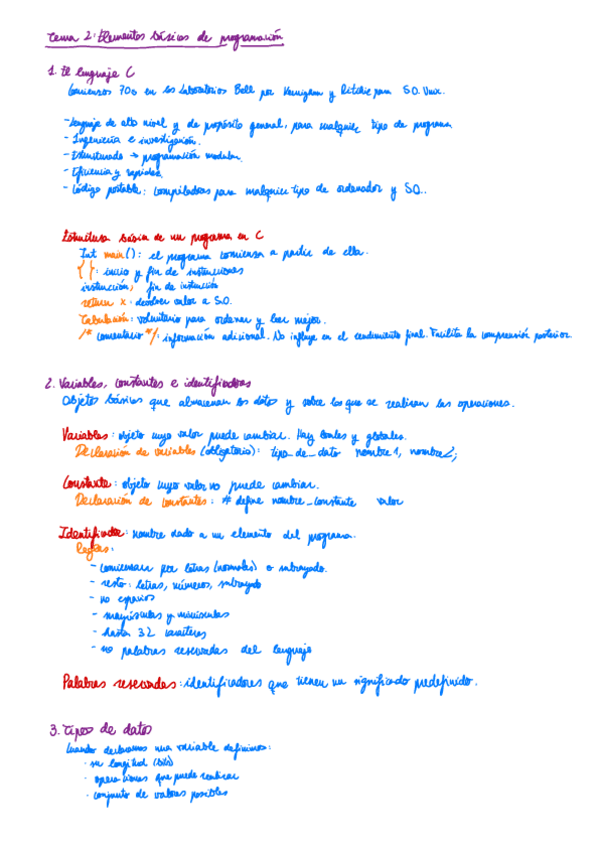 Tema 2: Elementos básicos de programación
1. El lenguaje C
Comienzos 70s en los Laboratorios Bell por Kernigham y Ritchie para S.O. Unix.
- Lenguaje de alto nivel y de propósito general, para cualquier tipo de programa
- Ingeniería e investigación.
- Estructurado → programación modular.
- Eficiencia y rapidez.
- Código portable: compiladores para cualquier tipo de ordenador y S.O..
Estructura básica de un programa en C
Int main(): el programa comienza a partir de ella.
{ }: inicio y fin de instrucciones
instrucción; fin de instrucción
return x: devolver valor a S.O.
Tabulación: voluntario para ordenar y leer mejor.
/* comentario */: información adicional. No influye en el rendimiento final. Facilita la comprensión posterior.
2. Variables, constantes e identificadores
Objetos básicos que almacenan los datos y sobre los que se realizan las operaciones.
Variables: objeto cuyo valor puede cambiar. Hay locales y globales.
Declaración de variables (obligatorio): tipo_de_dato nombre1, nombre2;
Constante: objeto cuyo valor no puede cambiar.
Declaración de constantes: # define nombre_constante valor
Identificador: nombre dado a un elemento del programa.
Reglas:
- comienzan por letras (normales) o subrayado.
- resto: letras, números, subrayado
- no espacios
- mayúsculas y minúsculas
- hasta 32 caracteres
- no palabras reservadas del lenguaje
Palabras reservadas: identificadores que tienen un significado predefinido.
3. Tipos de datos
Cuando declaramos una variable definimos:
· su longitud (bits)
· operaciones que puede realizar
· conjunto de valores posibles